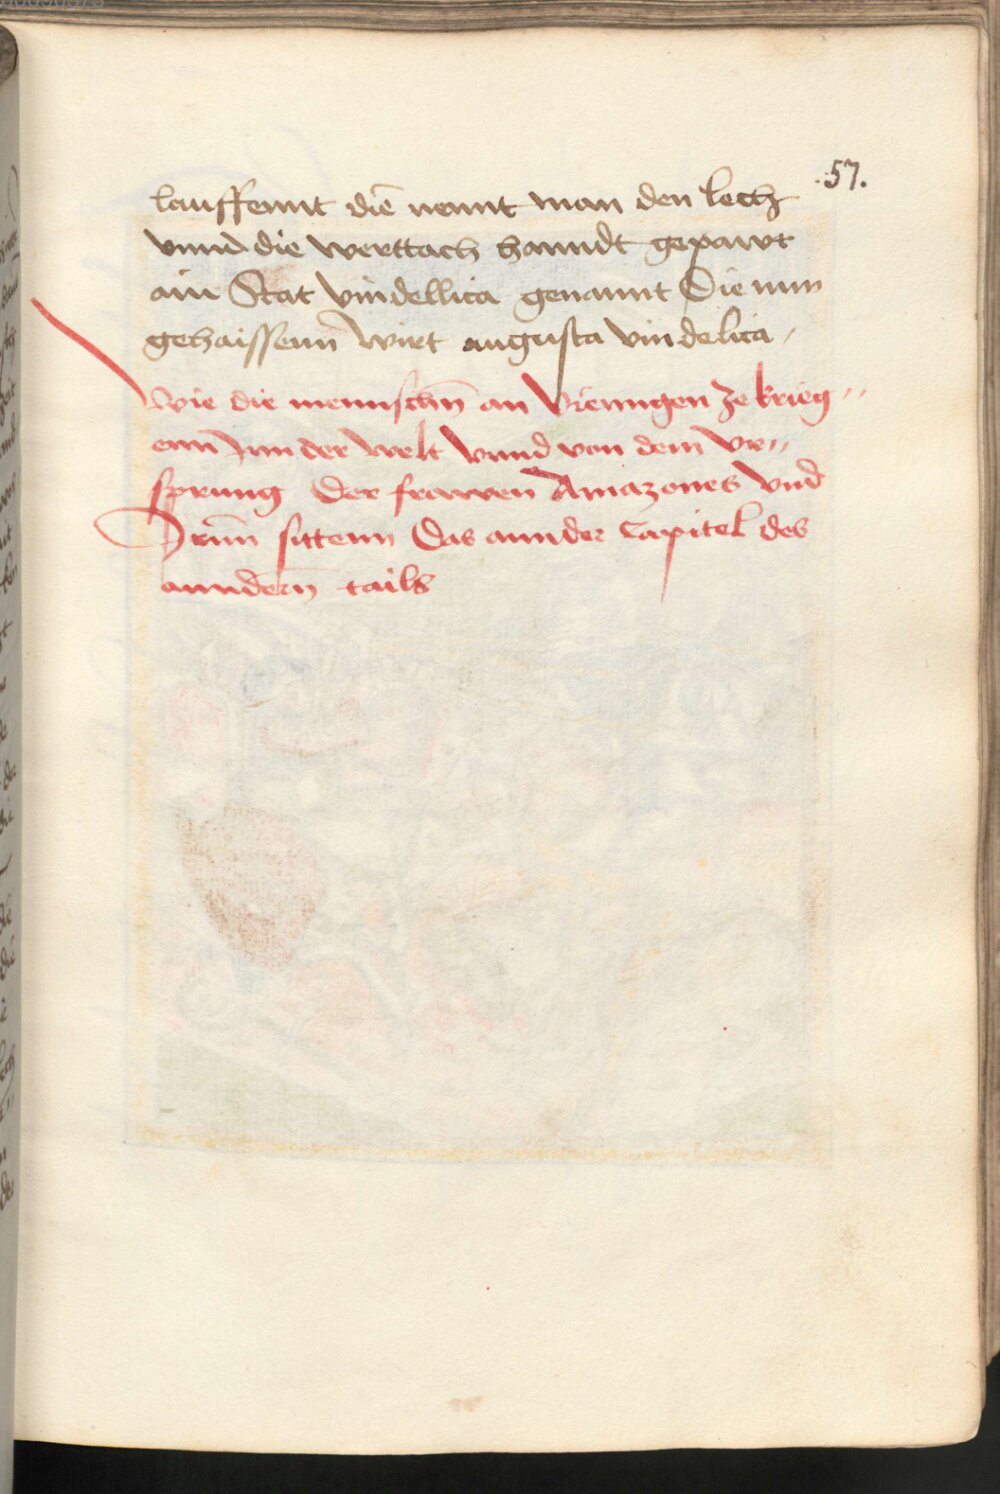 57.
lauffennt die nennt man den lech
vnnd die werttach hanndt gepawt
ain Stat vindellica genannt Die nun
gehaissenn wirt augusta vindelica
Wie die mennschñ an viengen ze krieg
enn Inn der welt vnnd von dem vr
sprung Der frawen Amazones vnd
Irnn sittenn Das annder Capitel des
anndern tails